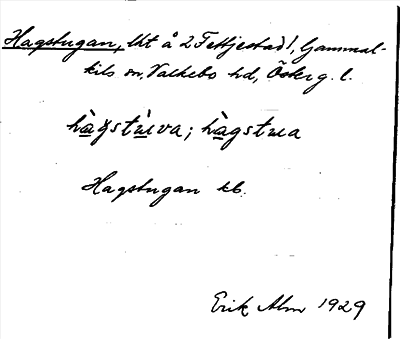 Hagstugan, lht å 2 Fettjestad!, Gammal-
kils sn, Valkebo hd, Österg. l.
hàgstùva; hàgstua
Hagstugan kb.
Erik Alm 1929